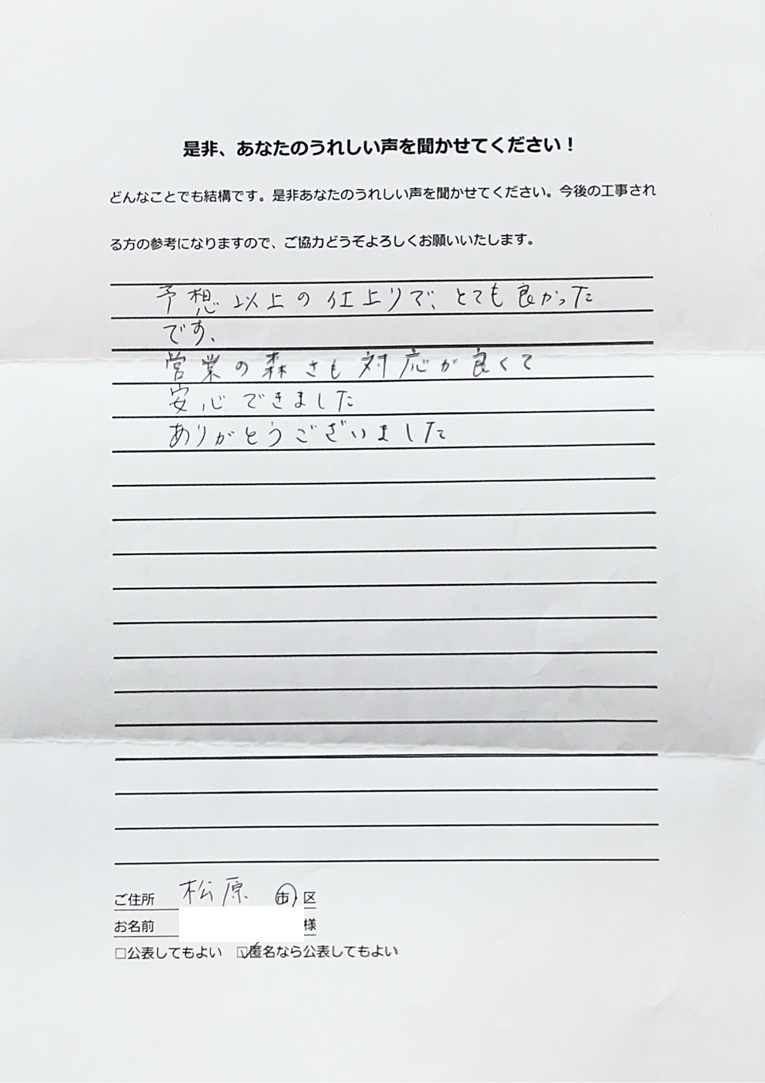 是非、あなたのうれしい声を聞かせてください！
どんなことでも結構です。是非あなたのうれしい声を聞かせてください。今後の工事され
る方の参考になりますので、ご協力どうぞよろしくお願いいたします。
予想以上の仕上りで、とても良かった
です、
営業の森さも対応が良くて
安心できました
ありがとうございました
ご住所 松原 市・区
お名前 様
□公表してもよい ☑匿名なら公表してもよい